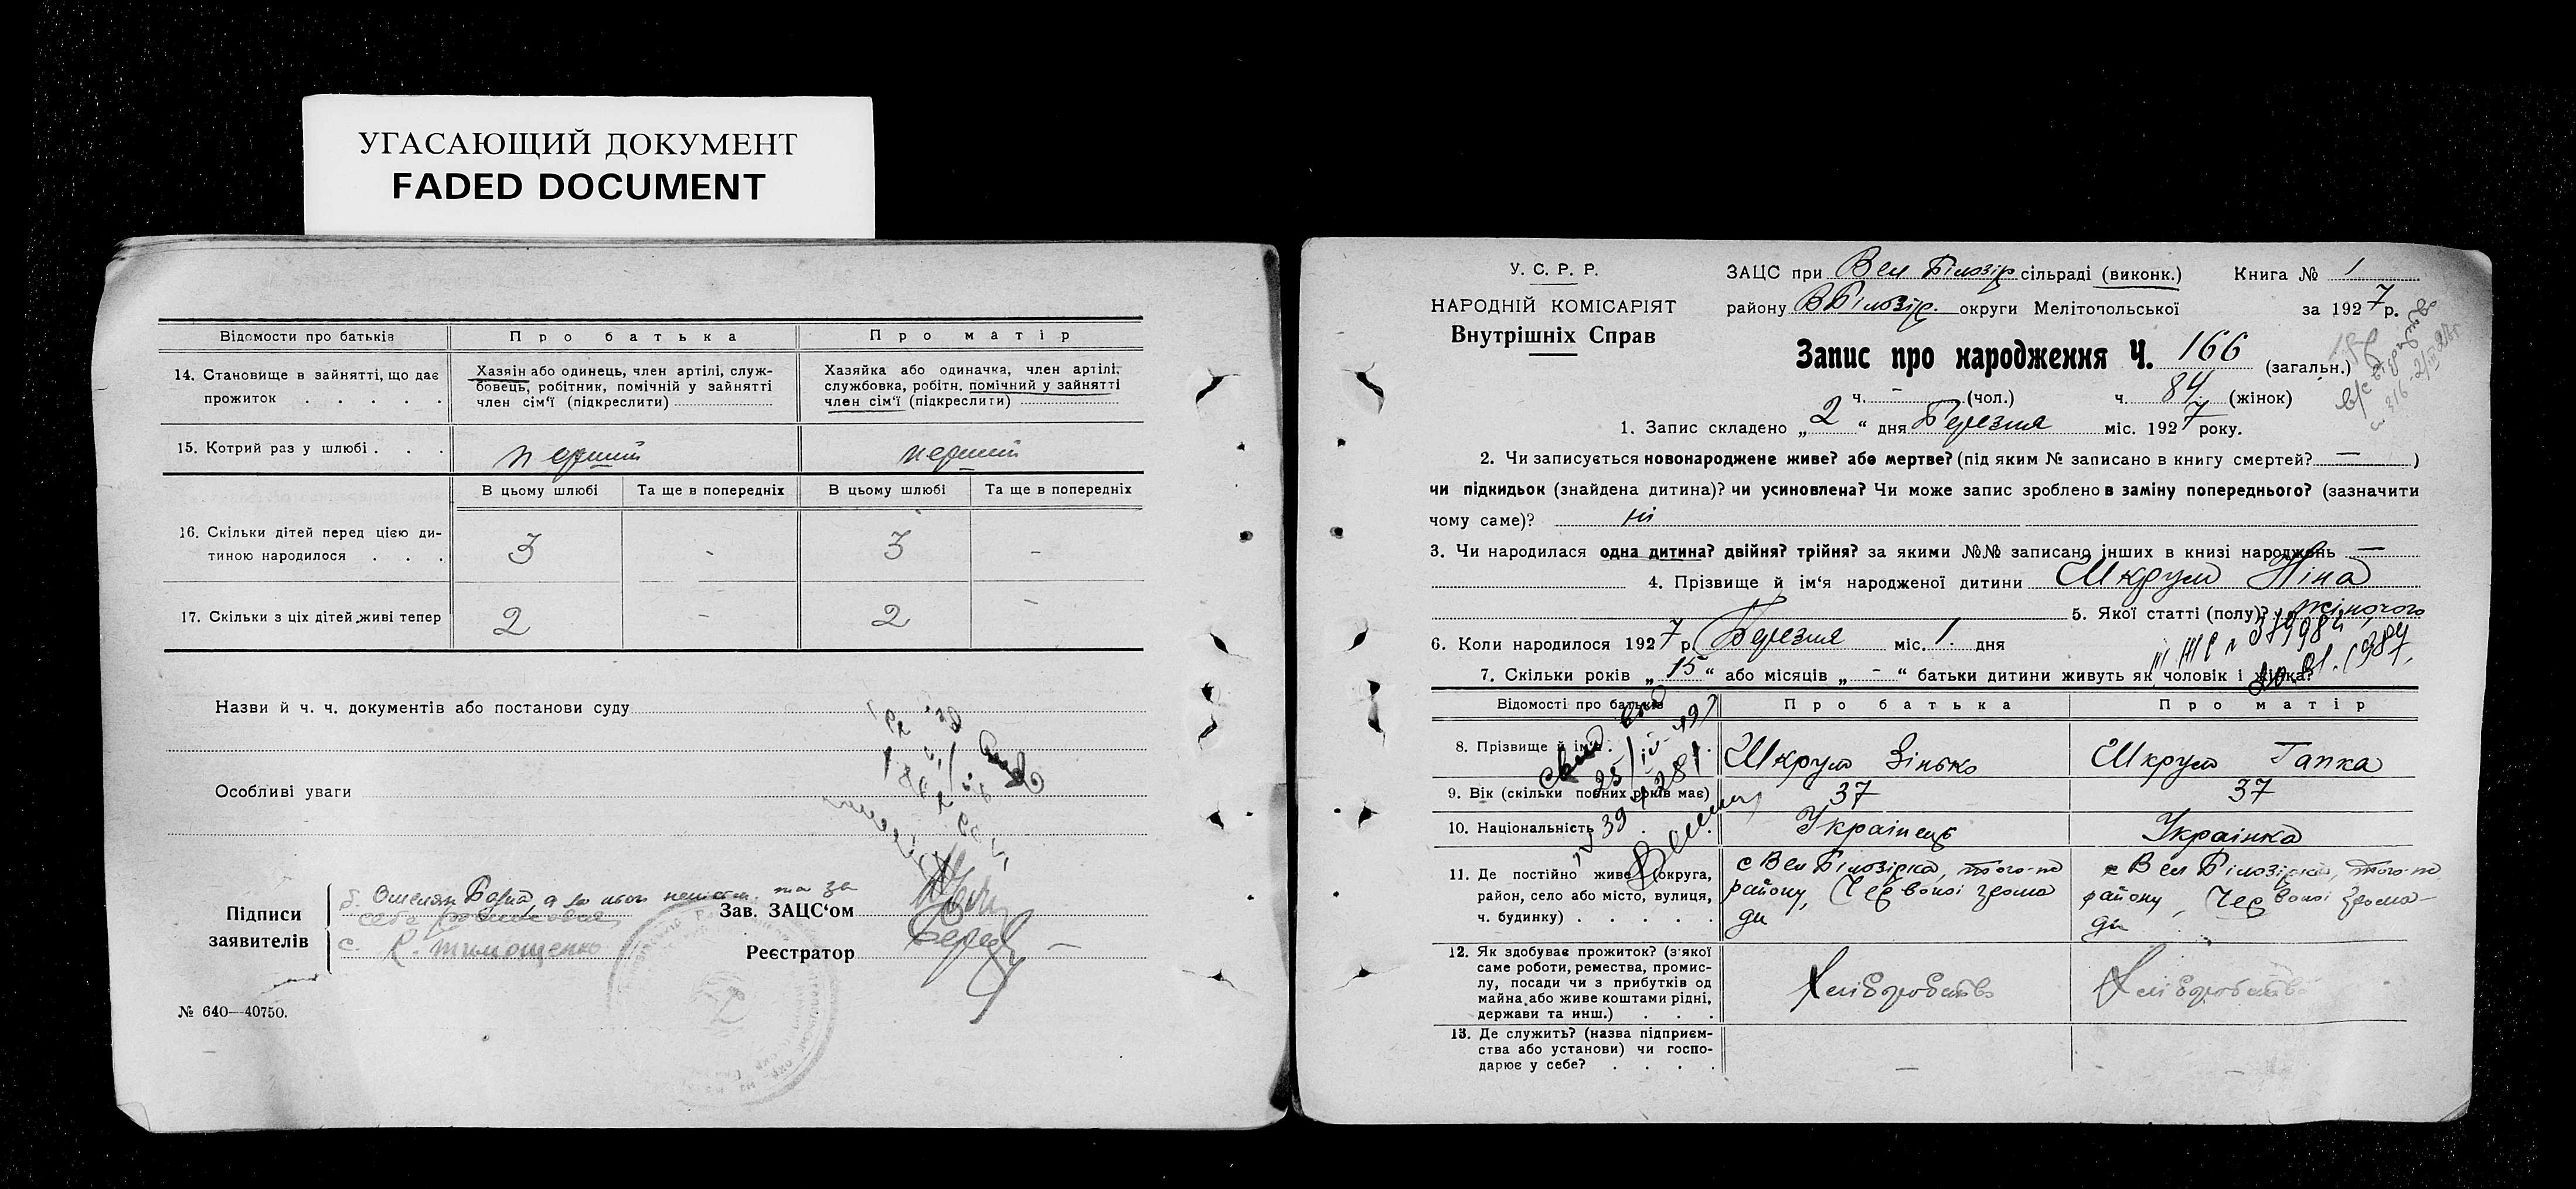 УГАСАЮЩИЙ ДОКУМЕНТ
FADED DOCUMENT
Відомости про батьків
Про батька
Про матір
14. Становище в зайнятті, що дає прожиток . . . . .
Хазяїн або одинець, член артілі, служ-
бовець, робітник, помічній у зайнятті
член сім'ї (підкреслити)
Хазяйка або одиначка, член артілі,
службовка, робітн. помічний у зайнятті
член сім'ї (підкреслити)
15. Котрий раз у шлюбі . . .
перший
перший
В цьому шлюбі
Та ще в попередніх
В цьому шлюбі
Та ще в попередніх
16. Скільки дітей перед цією ди-
тиною народилося . . .
3
-
3
-
17. Скільки з ціх дітей живі тепер
2
-
2
-
Назви й ч. ч. документів або постанови суду
Особливі уваги
Підписи
заявителів
б.
та за
себе
с. К. Тимощенко
Зав. ЗАЦС'ом
Реєстратор
№ 640—40750.
У. С. Р. Р.
НАРОДНІЙ КОМІСАРІЯТ
Внутрішніх Справ
ЗАЦС при Вел Білозір сільраді (виконк.)
Книга № 1
району ВБілозір. округи Мелітопольської
за 1927 р.
Запис про народження Ч. 166 (загальн.)
ч. - (чол.)
ч. 84 (жінок)
1. Запис складено „2“ дня Березня міс. 1927 року.
2. Чи записується новонароджене живе? або мертве? (під яким № записано в книгу смертей? — )
чи підкидьок (знайдена дитина)? чи усиновлена? Чи може запис зроблено в заміну попереднього? (зазначити
чому саме)? ні
3. Чи народилася одна дитина? двійня? трійня? за якими №№ записано інших в книзі народжень —
4. Прізвище й ім'я народженої дитини Шкрум Ніна
5. Якої статті (полу)? жіночого
6. Коли народилося 1927 р. Березня міс. 1. дня
7. Скільки років „15“ або місяців „-“ батьки дитини живуть як чоловік і жінка?
Відомості про батьків
Про батька
Про матір
8. Прізвище й ім'я .
Шкрум Зінько
Шкрум Гапка
9. Вік (скільки повних років має)
37
37
10. Національність
Українець
Українка
11. Де постійно живе (округа,
район, село або місто, вулиця,
ч. будинку) . . . . .
с Вел Білозірка, того-по
району, Червоної грома
ди
с Вел Білозірка, того-по
району, Червоної грома-
ди
12. Як здобуває прожиток? (з якої
саме роботи, ремества, промис-
лу, посади чи з прибутків од
майна або живе коштами рідні,
держави та инш.) . . .
Хліборобство
Хліборобство
13. Де служить? (назва підприєм-
ства або установи) чи госпо-
дарює у себе? . . . .
—
-